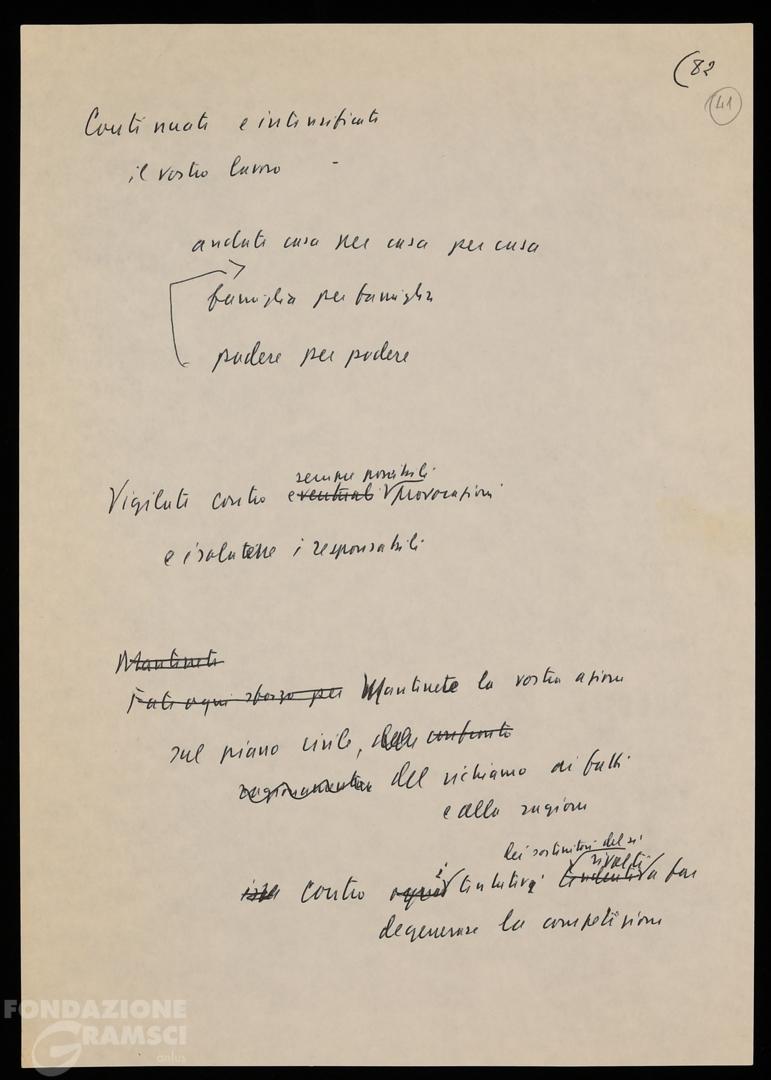 (82
41
Continuate e intensificate
il vostro lavoro -
andate casa per casa per casa
famiglia per famiglia
podere per podere
sempre possibili
Vigilate contro eventuali provocazioni
e isolatene i responsabili
Mantinete
Fate ogni sforzo per Mantinete la vostra azione
sul piano civile, della confronto
ragionamento del richiamo ai fatti
e alla ragione
dei sostenitori del sì
rivolti
contro ogni i tentativi tendenti a far
degenerare la competizione
FONDAZIONE
GRAMSCI
onlus